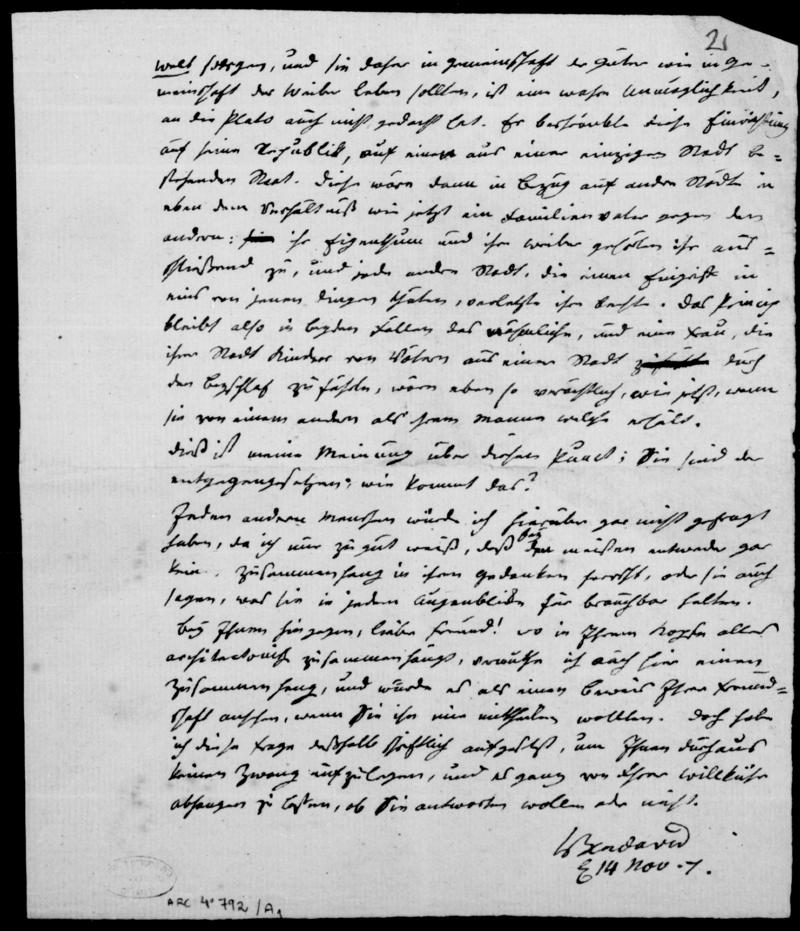 2
Welt sorgen, und sie daher in Gemeinschaft der Güter wie in Ge-
meinschaft der Weiber leben sollten, ist eine wahre Unmöglichkeit,
an die Plato auch nicht gedacht hat. Er beschränkte diese Einrichtung
auf seine Republik, auf einen aus einer einzigen Stadt be-
stehenden Staat. Diese wären dann in Bezug auf andre Städte in
eben dem Verhältniß wie jetzt ein Familienvater gegen den
andern: ihr Eigenthum und ihre Weiber gehörten ihr aus-
schließend zu, und jede andre Stadt, die einen Eingriff in
eins von jenen Dingen thäten, verletzte ihre Rechte. Das Princip
bleibt also in beyden Fällen das nähmliche, und eine Frau, die
ihrer Stadt Kinder von Vätern aus einer Stadt durch
den Beyschlaf zuführte, wäre eben so verächtlich, wie jetzt, wenn
sie von einem andern als ihrem Manne welche erhält.
Dieß ist meine Meinung über diesen Punct; Sie sind der
entgegengesetzten; wie kommt das?
Jeden andern Menschen würde ich hierüber gar nicht gefragt
haben, da ich nur zu gut weiß, daß bey den meisten entweder gar
kein Zusammenhang in ihren Gedanken herrscht, oder sie auch
sagen, was sie in jedem Augenblicke für brauchbar halten.
Bey Ihnen hingegen, lieber Freund! wo in Ihrem Kopfe alles
architectonisch zusammenhängt, vermuthe ich auch hier einen
Zusammenhang, und würde es als einen Beweis Ihrer Freund-
schaft ansehen, wenn Sie ihn mir mittheilen wollten. Doch habe
ich diese Frage deßhalb schriftlich aufgesetzt, um Ihnen durchaus
keinen Zwang aufzulegen, und es ganz von Ihrer Willkühr
abhangen zu lassen, ob Sie antworten wollen oder nicht.
Bendavid
14 Nov. 7.
ARC 4° 792/A9